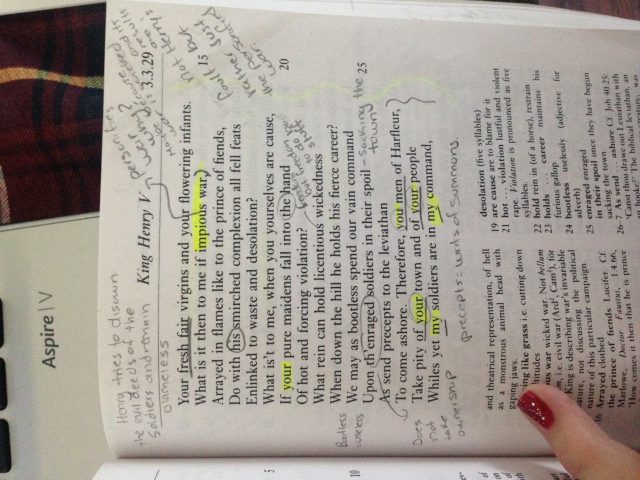 Aspire | V
Henry tries to disown
the evil deeds of the
Soldiers and remain
blameless
King Henry V
3.3.29
personifies
war
Not Henry's
Not
fault just
Your fresh fair virgins and your flowering infants.
What is it then to me if impious war,
15
Arrayed in flames like to the prince of fiends,
Do with his smirched complexion all fell feats
Enlinked to waste and desolation?
What is't to me, when you yourselves are cause,
If your pure maidens fall into the hand
20
Of hot and forcing violation?
What rein can hold licentious wickedness
When down the hill he holds his fierce career?
We may as bootless spend our vain command
Upon th'enraged soldiers in their spoil
25
= sacking the
town
As send precepts to the leviathan
To come ashore. Therefore, you men of Harfleur,
Take pity of your town and of your people
Whiles yet my soldiers are in my command,
Bootless
= useless
Does
not
take
ownership
precepts = writs of Summons
5
10
and theatrical representation, of hell
as a monstrous animal head with
gaping jaws.
like grass i.e. cutting down
war wicked war, Not bellum
i.e. civil war
King is describing war's invariable
nature, not discussing the political
nature of this particular campaign.
Arrayed clothed
the prince of fiends Lucifer. Cf.
Marlowe, Doctor Faustus, 1.4.66,
'How comes it then that he is prince
desolation (five syllables)
19 are cause are to blame for it
21 hot . . . violation lustful and violent
rape. Violation is pronounced as five
syllables.
22 hold rein in (of a horse), restrain
23 holds . . . career maintains his
furious gallop
24 bootless uselessly (adjective for
adverb)
25 enraged enraged
in their spoil once they have begun
sacking the town
26–7 As send . . . ashore Cf. Job 40.25:
'Canst thou drawe out Leviathan with